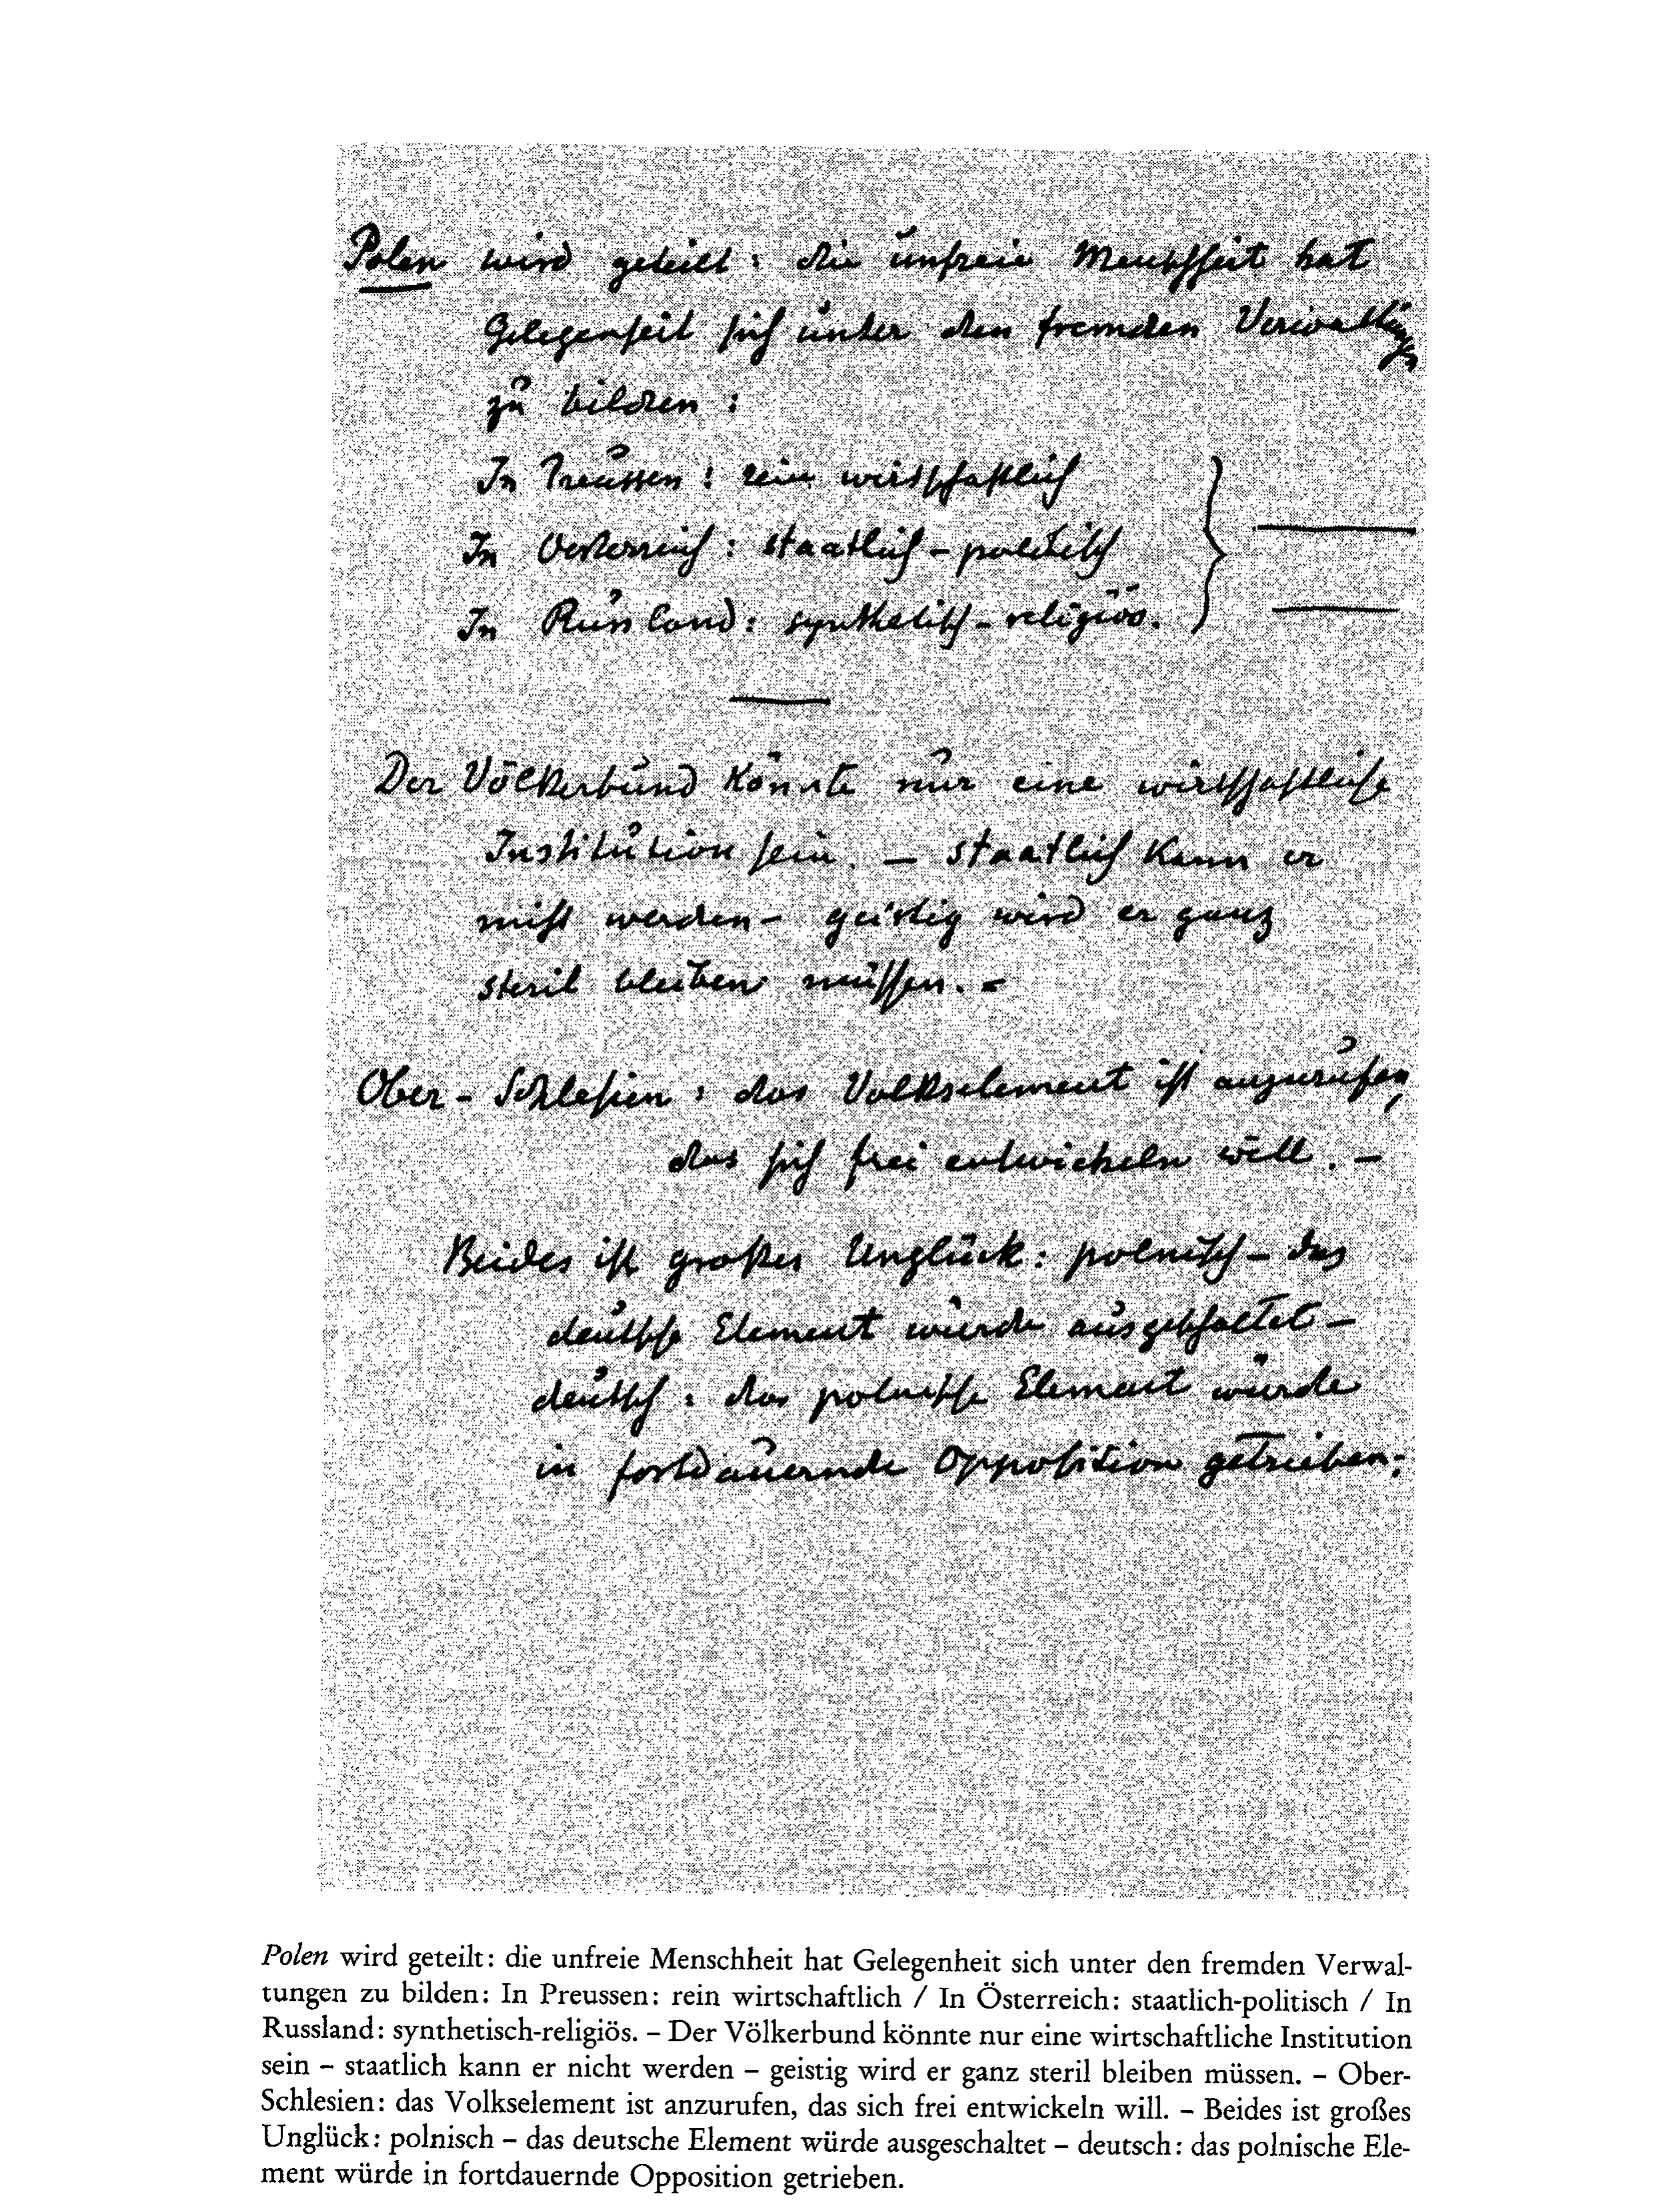 Polen wird geteilt: die unfreie Menschheit hat
Gelegenheit sich unter den fremden Verwaltungen
zu bilden:
In Preussen: rein wirtschaftlich
In Oesterreich: staatlich-politisch
In Russland: synthetisch-religiös.
Der Völkerbund könnte nur eine wirtschaftliche
Institution sein. – staatlich kann er
nicht werden – geistig wird er ganz
steril bleiben müssen. –
Ober-Schlesien: das Volkselement ist anzurufen,
das sich frei entwickeln will. –
Beides ist großes Unglück: polnisch – das
deutsche Element würde ausgeschaltet –
deutsch: das polnische Element würde
in fortdauernde Opposition getrieben;
Polen wird geteilt: die unfreie Menschheit hat Gelegenheit sich unter den fremden Verwal-
tungen zu bilden: In Preussen: rein wirtschaftlich / In Österreich: staatlich-politisch / In
Russland: synthetisch-religiös. – Der Völkerbund könnte nur eine wirtschaftliche Institution
sein – staatlich kann er nicht werden – geistig wird er ganz steril bleiben müssen. – Ober-
Schlesien: das Volkselement ist anzurufen, das sich frei entwickeln will. – Beides ist großes
Unglück: polnisch – das deutsche Element würde ausgeschaltet – deutsch: das polnische Ele-
ment würde in fortdauernde Opposition getrieben.